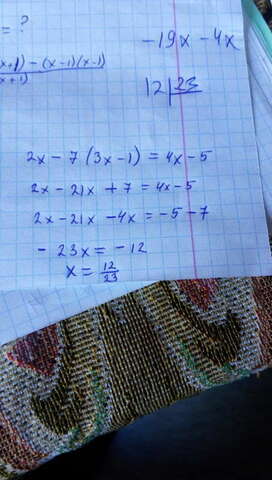 = ?
x+1) - (x-1)(x-1)
x+1)
-19x - 4x
12 | 23
2x - 7 (3x - 1) = 4x - 5
2x - 21x + 7 = 4x - 5
2x - 21x - 4x = -5 - 7
- 23x = - 12
x = 12/23